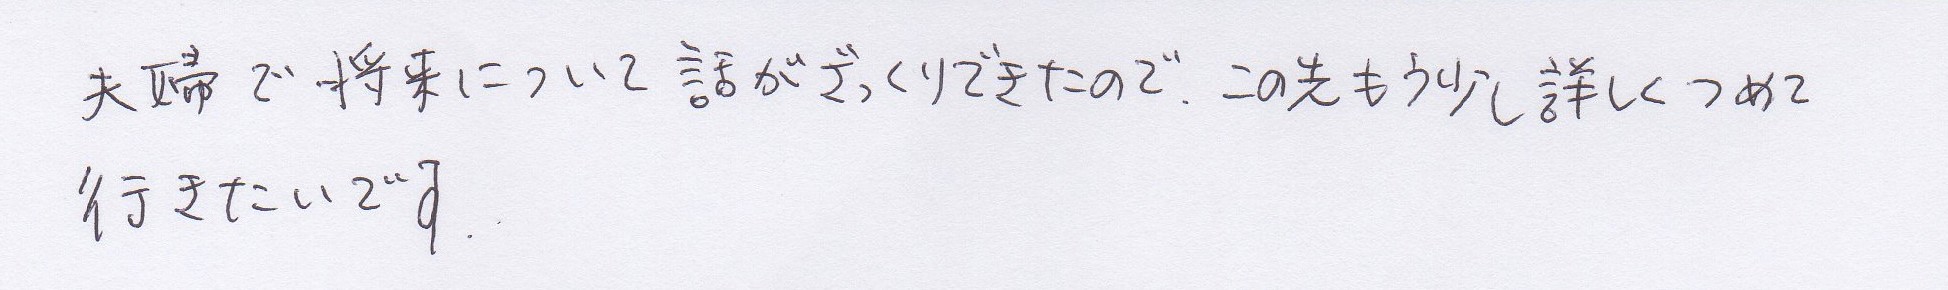 夫婦で将来について話がざっくりできたので、この先もう少し詳しくつめて
行きたいです。